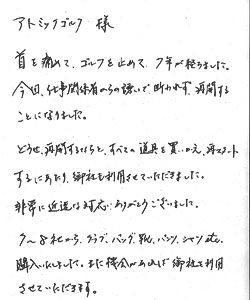 アトミックゴルフ 様
首を痛めて、ゴルフを止めて、7年が経ちました。
今回、仕事関係者からの誘いで断われず、再開する
ことになりました。
どうせ、再開するならと、すべての道具を買いかえ、再スタート
するにあたり、御社を利用させていただきました。
非常に迅速な対応、ありがとうございました。
7〜8社から、クラブ、バッグ、靴、パンツ、シャツetc.
購入いたしました。また機会があれば御社を利用
させていただきます。